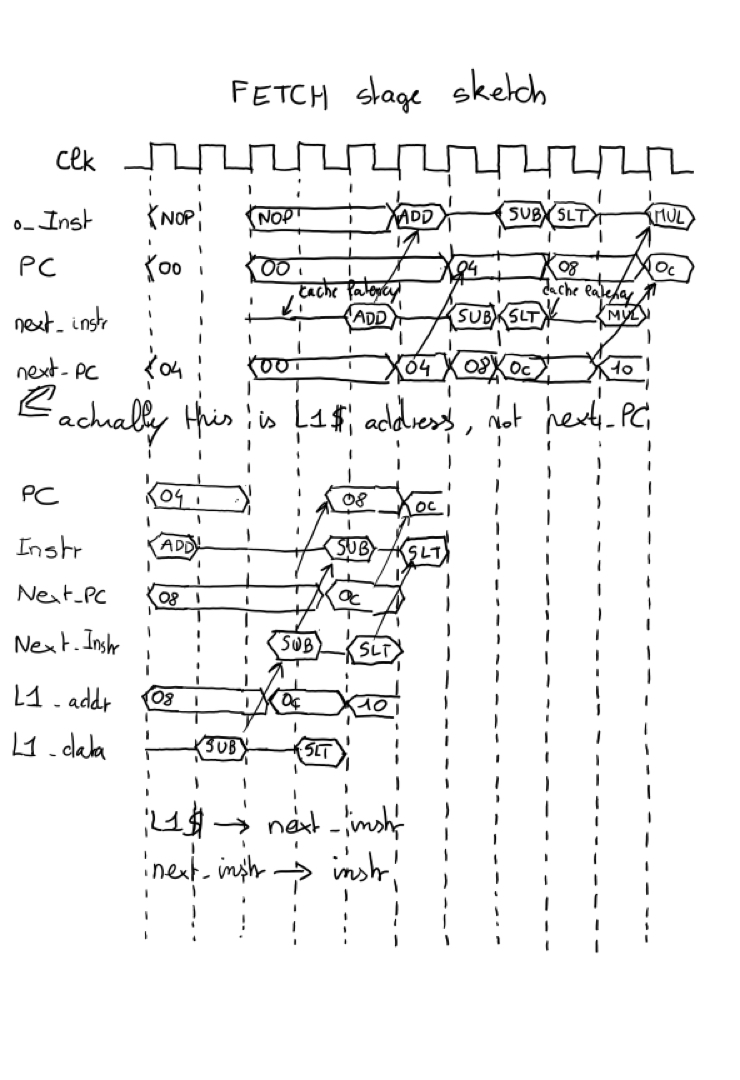 FETCH stage sketch
clk
o_Inst NOP NOP ADD SUB SLT MUL
PC 00 00 04 08 0c
cache latency cache latency
next_instr ADD SUB SLT MUL
next-PC 04 00 04 08 0c 10
actually this is L1$ address, not next_PC
PC 04 08 0c
Instr ADD SUB SLT
Next_PC 08 0c
Next_Instr SUB SLT
L1_addr 08 0c 10
L1_data SUB SLT
L1$ → next_instr
next_instr → instr